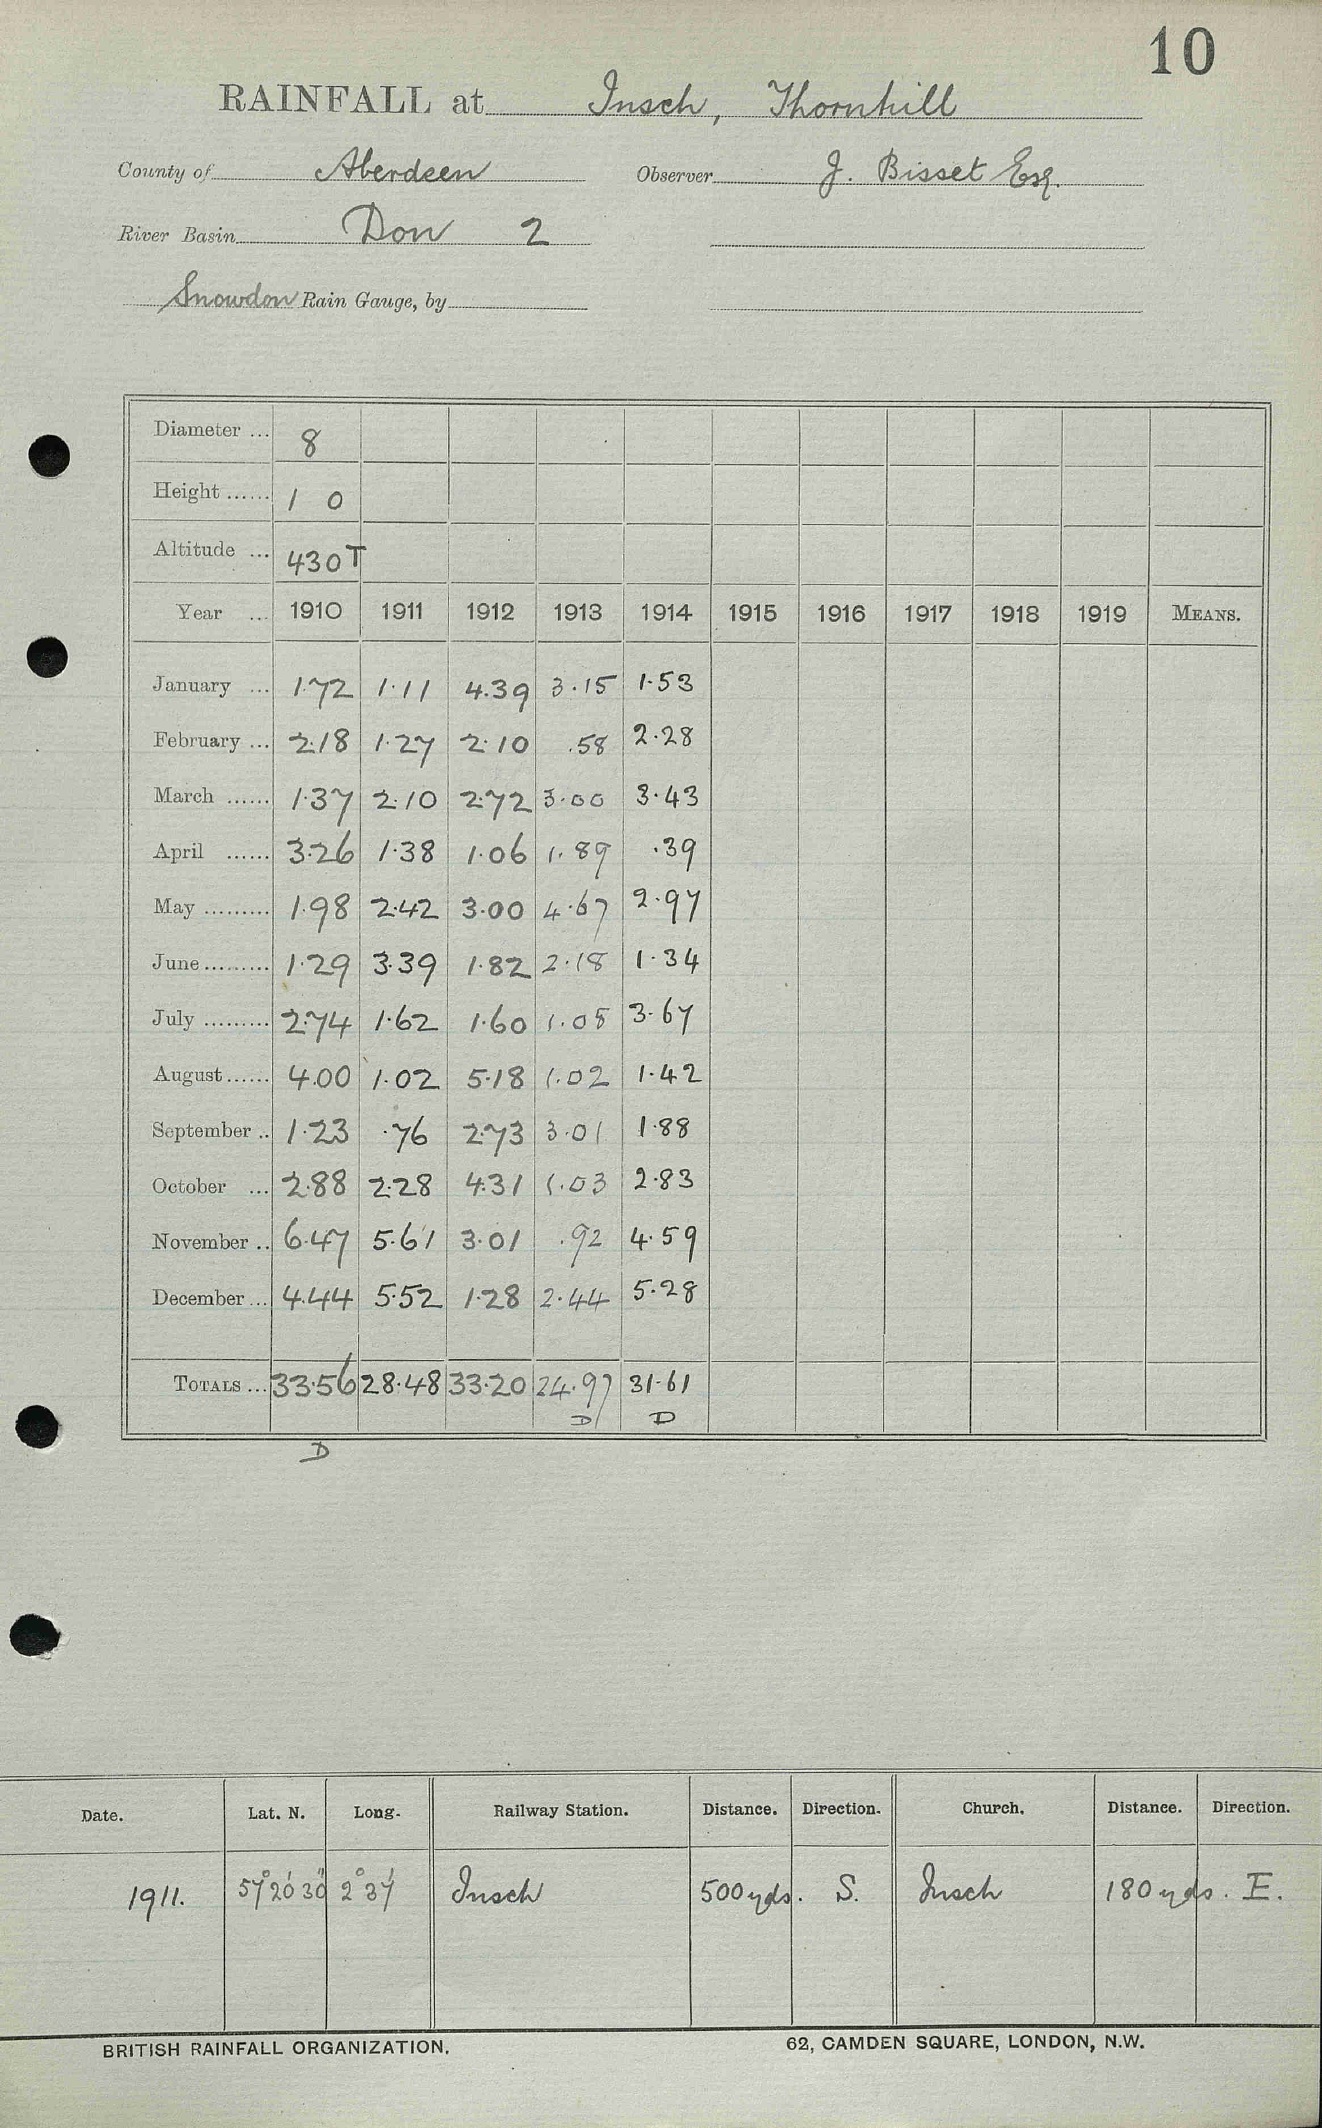 10
RAINFALL at Insch, Thornhill
County of Aberdeen Observer J. Bisset Esq.
River Basin Don 2
Snowdon Rain Gauge, by
Diameter ... 8
Height ...... 1 0
Altitude ... 430T
Year ... 1910 1911 1912 1913 1914 1915 1916 1917 1918 1919 MEANS.
January ... 1.72 1.11 4.39 3.15 1.53
February ... 2.18 1.27 2.10 .58 2.28
March ...... 1.37 2.10 2.72 3.00 3.43
April ...... 3.26 1.38 1.06 1.89 .39
May ......... 1.98 2.42 3.00 4.67 2.97
June ......... 1.29 3.39 1.82 2.18 1.34
July ......... 2.74 1.62 1.60 1.08 3.67
August ...... 4.00 1.02 5.18 1.02 1.42
September .. 1.23 .76 2.73 3.01 1.88
October ... 2.88 2.28 4.31 1.03 2.83
November .. 6.47 5.61 3.01 .92 4.59
December ... 4.44 5.52 1.28 2.44 5.28
TOTALS ... 33.56 28.48 33.20 24.97 31.61
D D
D
Date. Lat. N. Long. Railway Station. Distance. Direction. Church. Distance. Direction.
1911. 57° 20' 30" 2° 37' Insch 500 yds. S. Insch 180 yds. E.
BRITISH RAINFALL ORGANIZATION. 62, CAMDEN SQUARE, LONDON, N.W.